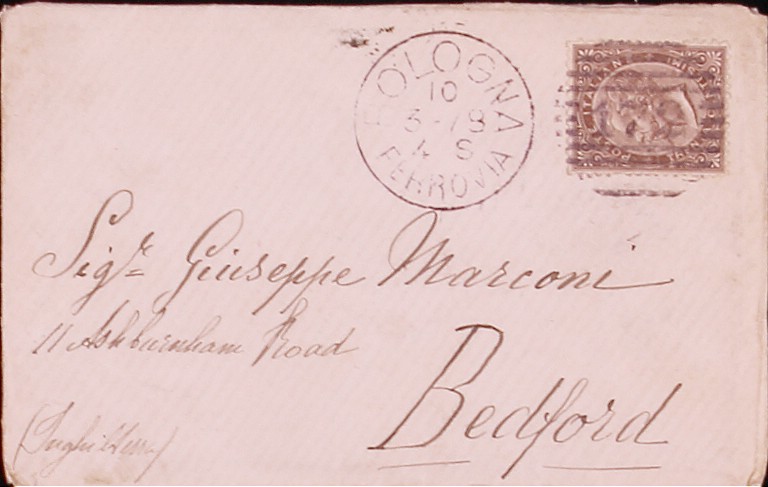 BOLOGNA
10
3-78
4 S
FERROVIA
POSTE ITALIANE
Sigr. Giuseppe Marconi
11 Ashburnham Road
Bedford
(Inghilterra)